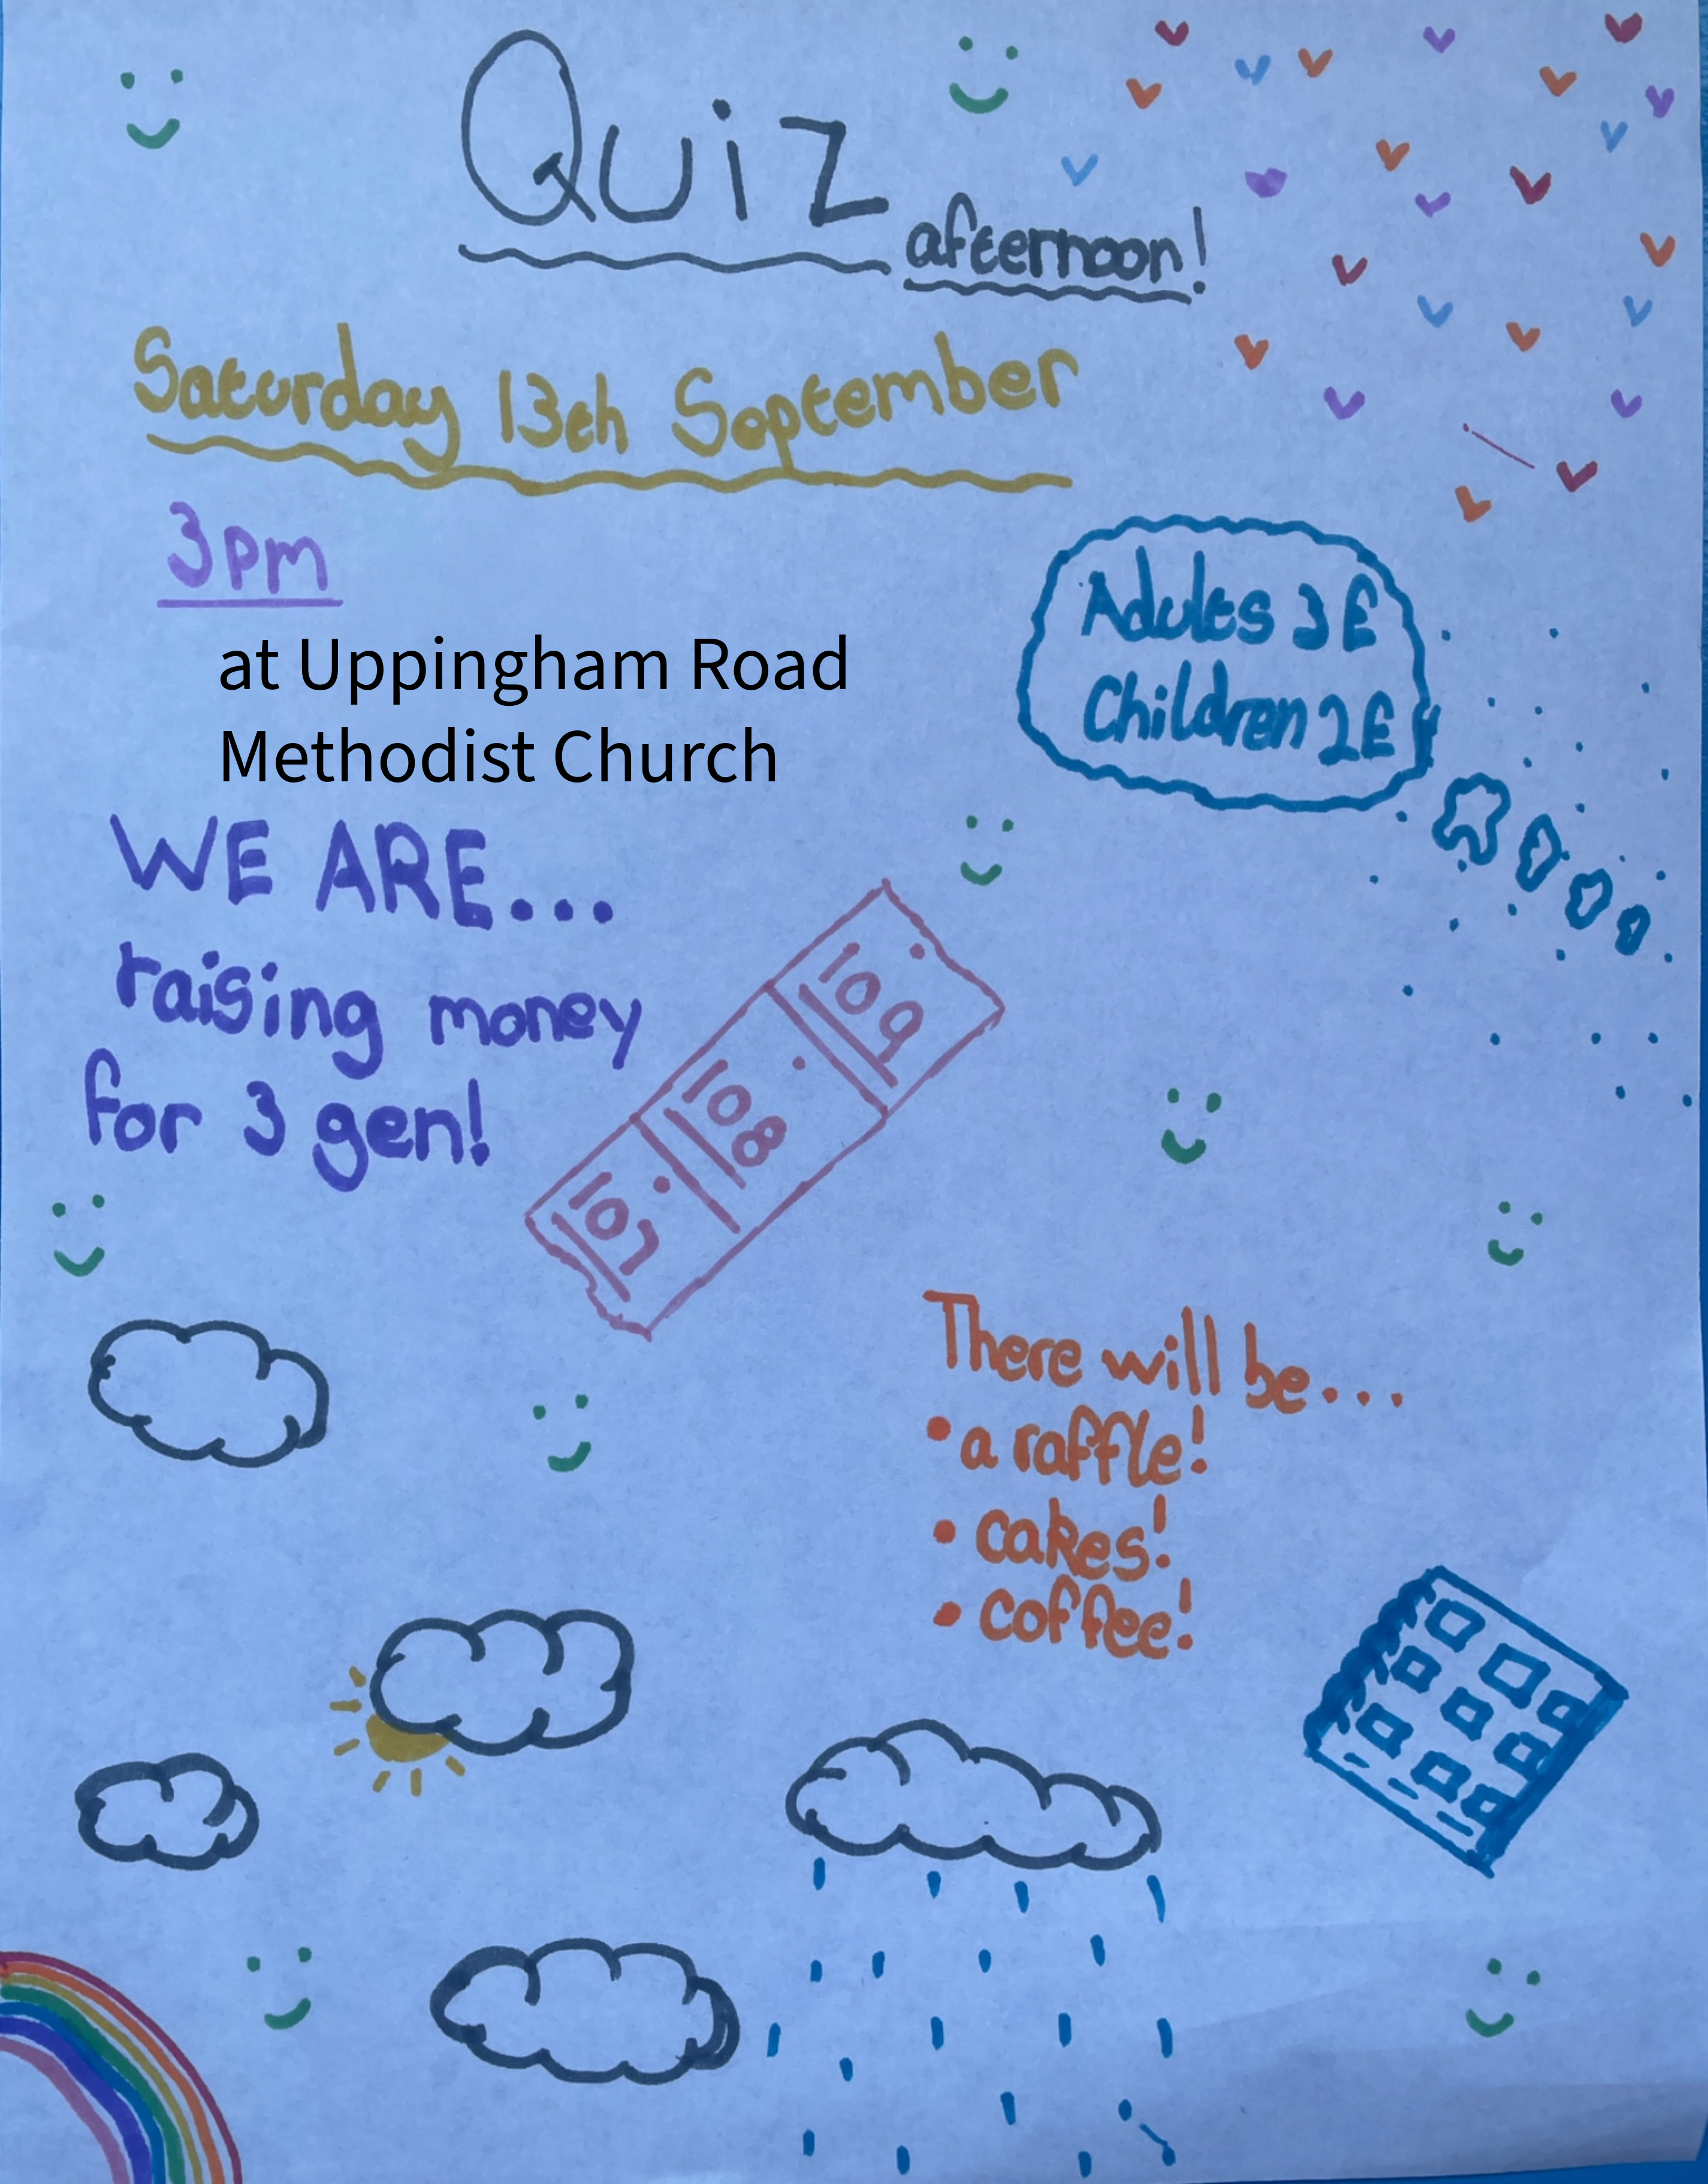 Quiz
afternoon!
Saturday 13th September
3pm
at Uppingham Road
Methodist Church
Adults 3£
Children 2£
WE ARE...
raising money
for 3 gen!
109
108
107
There will be...
• a raffle!
• cakes!
• coffee!